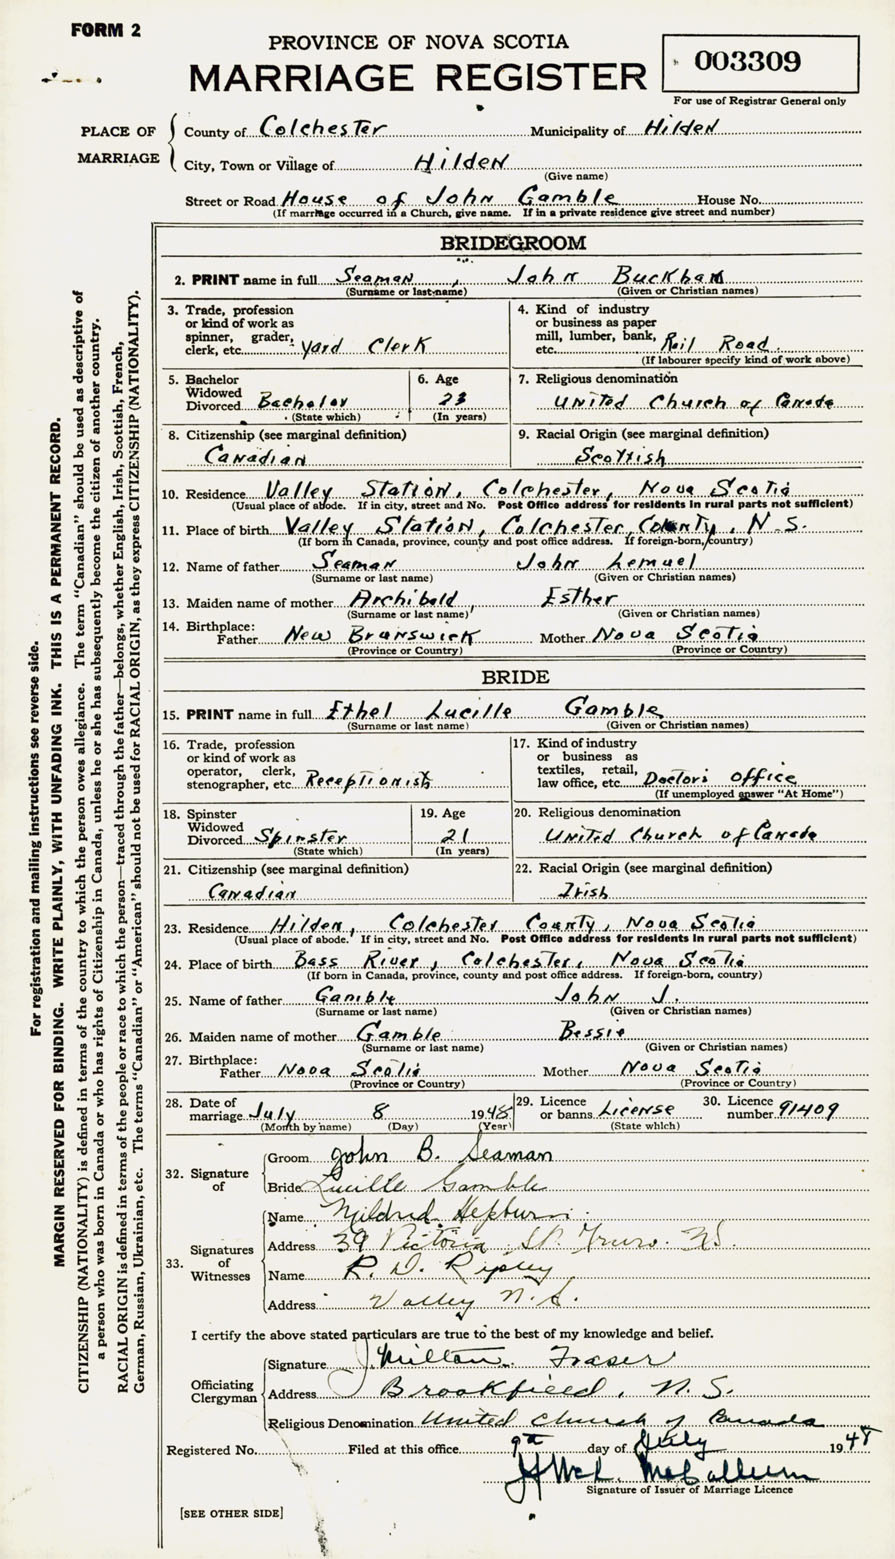 FORM 2
PROVINCE OF NOVA SCOTIA
MARRIAGE REGISTER
003309
For use of Registrar General only
PLACE OF MARRIAGE
County of Colchester Municipality of Hilden
City, Town or Village of Hilden
(Give name)
Street or Road House of John Gamble House No.
(If marriage occurred in a Church, give name. If in a private residence give street and number)
BRIDEGROOM
2. PRINT name in full Seaman, John Buckham
(Surname or last name) (Given or Christian names)
3. Trade, profession or kind of work as spinner, grader, clerk, etc. Yard Clerk
4. Kind of industry or business as paper mill, lumber, bank, etc. Rail Road
(If labourer specify kind of work above)
5. Bachelor Widowed Divorced Bachelor
(State which)
6. Age 23
(In years)
7. Religious denomination
United Church of Canada
8. Citizenship (see marginal definition)
Canadian
9. Racial Origin (see marginal definition)
Scottish
10. Residence Valley Station, Colchester, Nova Scotia
(Usual place of abode. If in city, street and No. Post Office address for residents in rural parts not sufficient)
11. Place of birth Valley Station, Colchester County, N.S.
(If born in Canada, province, county and post office address. If foreign-born, country)
12. Name of father Seaman John Lemuel
(Surname or last name) (Given or Christian names)
13. Maiden name of mother Archibald, Esther
(Surname or last name) (Given or Christian names)
14. Birthplace:
Father New Brunswick Mother Nova Scotia
(Province or Country) (Province or Country)
BRIDE
15. PRINT name in full Ethel Lucille Gamble
(Surname or last name) (Given or Christian names)
16. Trade, profession or kind of work as operator, clerk, stenographer, etc. Receptionist
17. Kind of industry or business as textiles, retail, law office, etc. Doctors Office
(If unemployed answer "At Home")
18. Spinster Widowed Divorced Spinster
(State which)
19. Age 21
(In years)
20. Religious denomination
United Church of Canada
21. Citizenship (see marginal definition)
Canadian
22. Racial Origin (see marginal definition)
Irish
23. Residence Hilden, Colchester County, Nova Scotia
(Usual place of abode. If in city, street and No. Post Office address for residents in rural parts not sufficient)
24. Place of birth Bass River, Colchester, Nova Scotia
(If born in Canada, province, county and post office address. If foreign-born, country)
25. Name of father Gamble John J.
(Surname or last name) (Given or Christian names)
26. Maiden name of mother Gamble Bessie
(Surname or last name) (Given or Christian names)
27. Birthplace:
Father Nova Scotia Mother Nova Scotia
(Province or Country) (Province or Country)
28. Date of marriage July 8 1948
(Month by name) (Day) (Year)
29. Licence or banns License
(State which)
30. Licence number 91409
32. Signature of
Groom John B. Seaman
Bride Lucille Gamble
33. Signatures of Witnesses
Name Mildred Hepburn
Address 39 Victoria St. Truro. N S
Name R. D. Ripley
Address Valley N.S.
I certify the above stated particulars are true to the best of my knowledge and belief.
Officiating Clergyman
Signature J. Milton Fraser
Address Brookfield, N.S.
Religious Denomination United Church of Canada
Registered No. Filed at this office 9th day of July 1948
McCallum
Signature of Issuer of Marriage Licence
[SEE OTHER SIDE]
For registration and mailing instructions see reverse side.
MARGIN RESERVED FOR BINDING. WRITE PLAINLY, WITH UNFADING INK. THIS IS A PERMANENT RECORD.
CITIZENSHIP (NATIONALITY) is defined in terms of the country to which the person owes allegiance. The term "Canadian" should be used as descriptive of
a person who was born in Canada or who has rights of Citizenship in Canada, unless he or she has subsequently become the citizen of another country.
RACIAL ORIGIN is defined in terms of the people or race to which the person—traced through the father—belongs, whether English, Irish, Scottish, French,
German, Russian, Ukrainian, etc. The terms "Canadian" or "American" should not be used for RACIAL ORIGIN, as they express CITIZENSHIP (NATIONALITY).